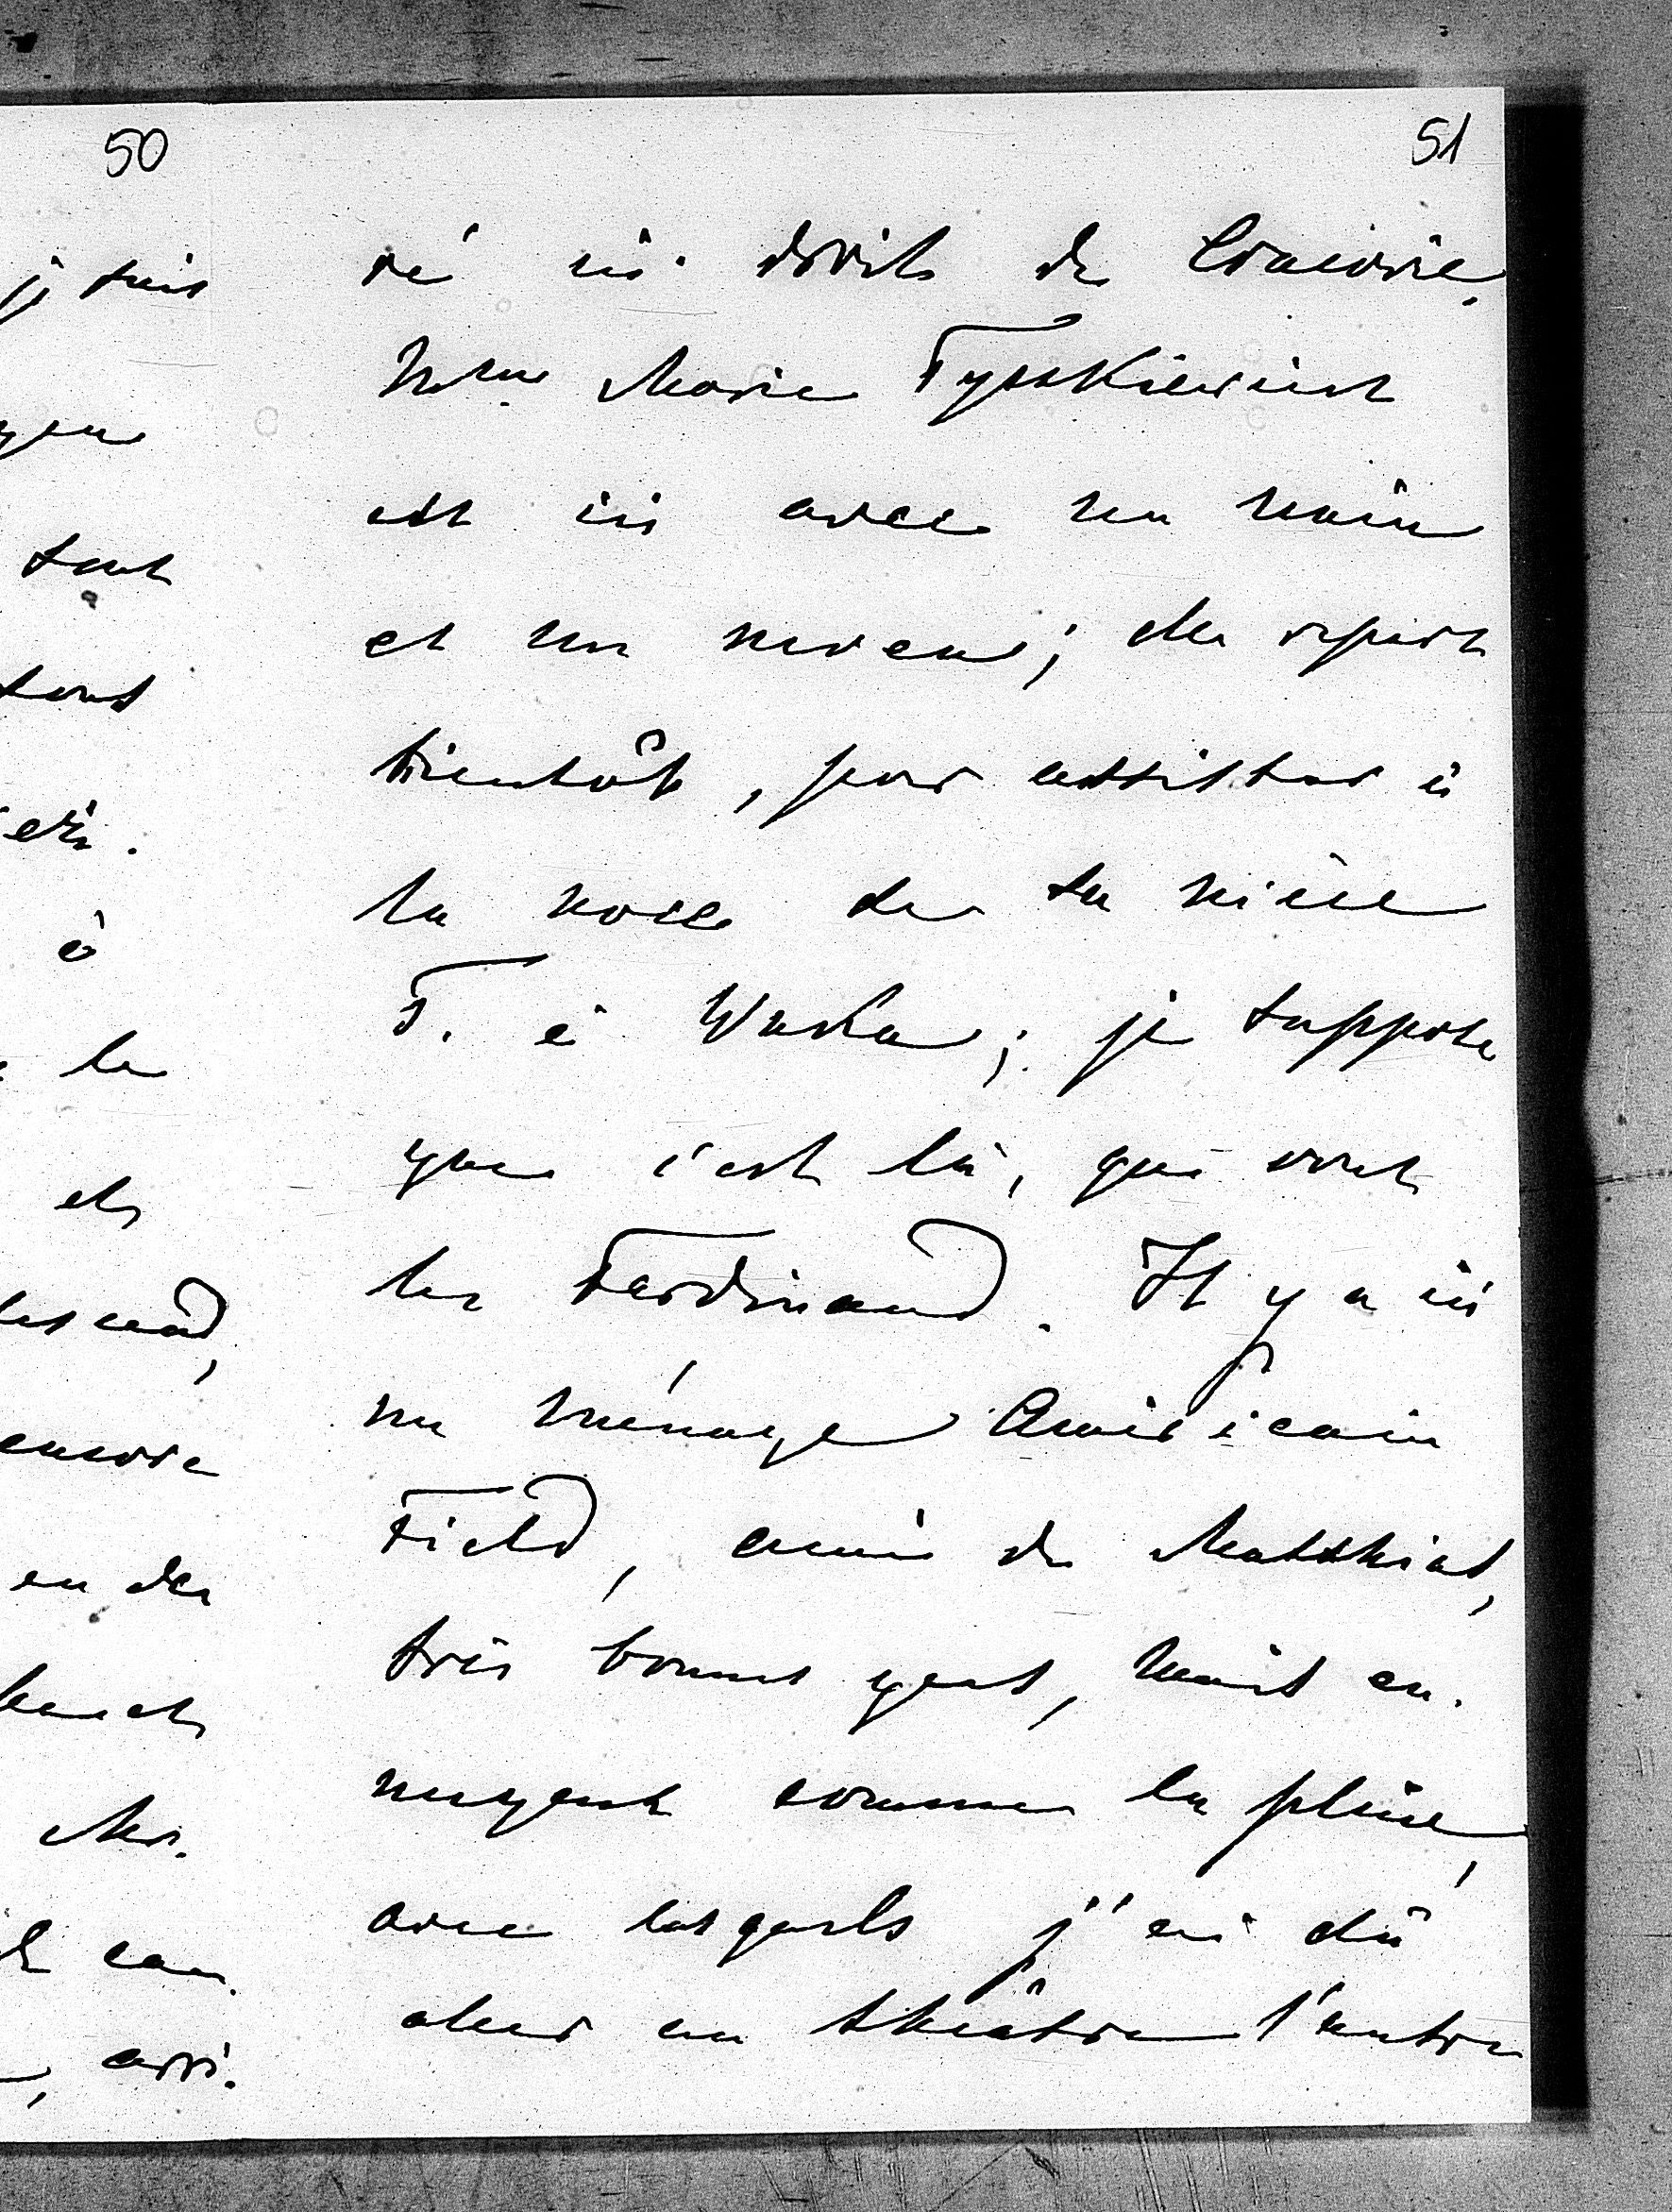 50
je suis
tout
sont
à
la
et
encore
en des
can-
, arri-
51
vé ici droit de Cracovie.
Mme Marie Tyszkiewicz
est ici avec un nain
et un neveu; elle repart
bientôt, pour assister à
la noce de sa nièce
T. à Waka; je suppose
que c'est là, que vont
les Ferdinand. Il y a ici
un ménage Américain
Field, amis de Matthias,
très bonnes gens, mais en-
nuyeux comme la pluie,
avec lesquels j'ai dû
aller au théâtre l'autre